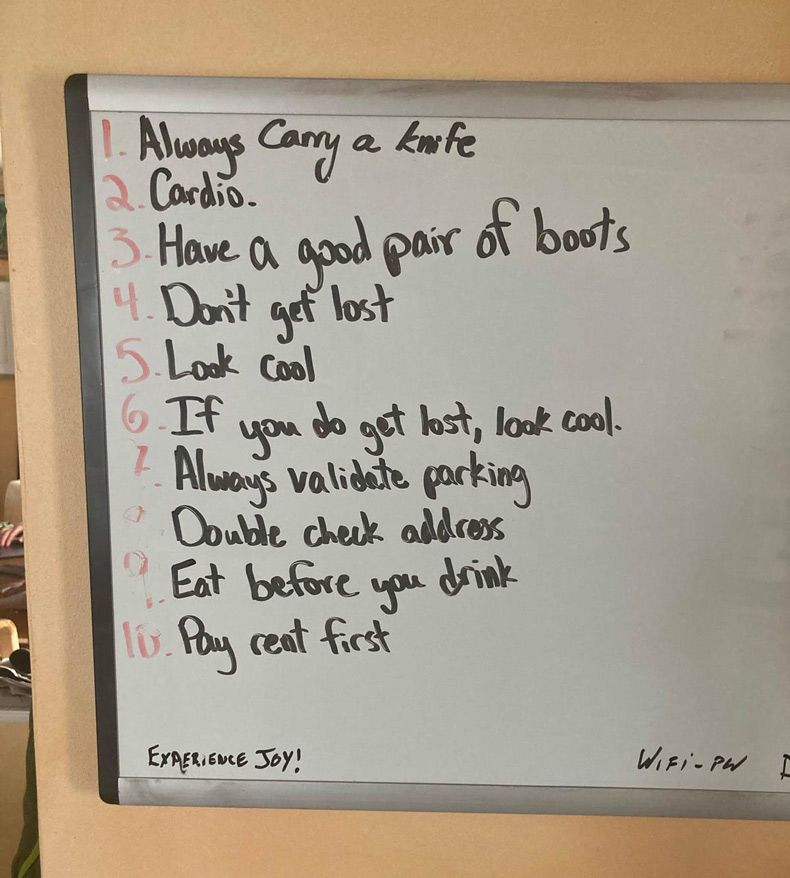 1. Always Carry a knife
2. Cardio.
3. Have a good pair of boots
4. Don't get lost
5. Look cool
6. If you do get lost, look cool.
7. Always validate parking
Double check address
9. Eat before you drink
10. Pay rent first
EXPERIENCE JOY!
WiFi-PW